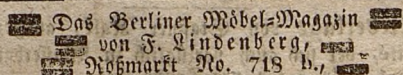 Das Berliner Möbel=Magazin
von F. Lindenberg,
Roßmarkt No. 718 b.,